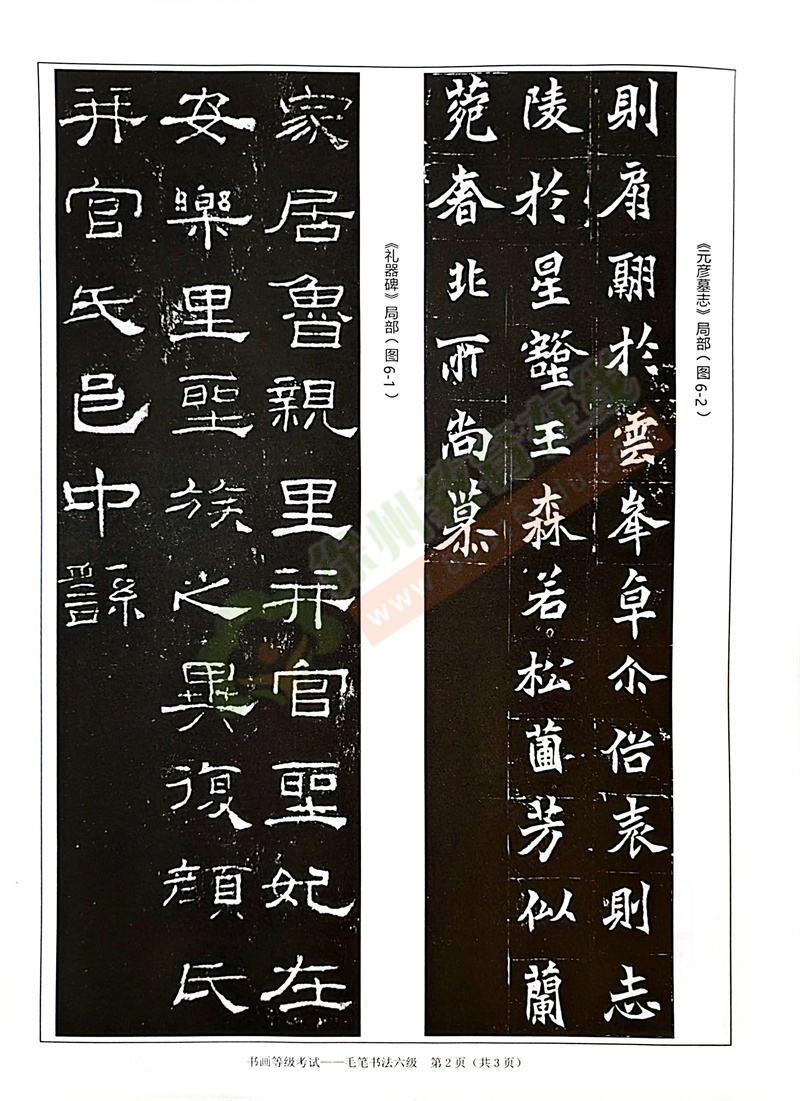 《元彦墓志》局部（图6-2）
則扇翮於雲峯卓尒俗表則志
陵於星壑王森若松薗芳似蘭
菀奢北所尚慕
《礼器碑》局部（图6-1）
家居魯親里并官聖妃在
安樂里聖族之異復顏氏
并官氏邑中繇
徐州教育在线
书画等级考试——毛笔书法六级 第2页（共3页）